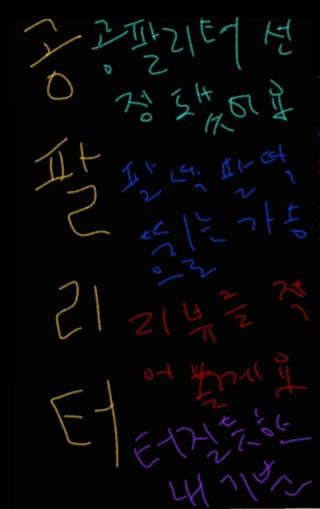 공 공팔리터 선
정 됐어요
팔 팔년 팔덕
뛰는 가슴
으로
리 리뷰를 적
어 볼게요
터 터질듯한
내 기분